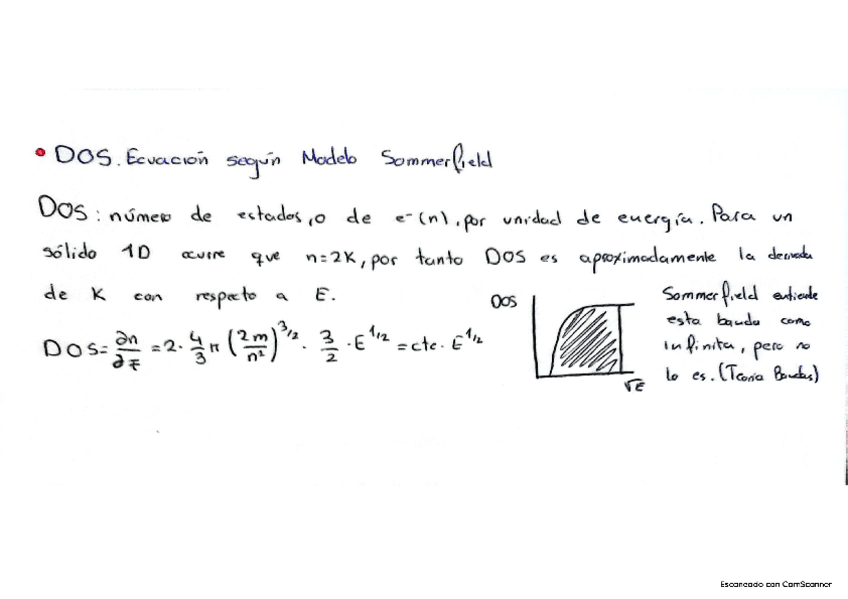 • DOS. Ecuación según Modelo Sommerfield
DOS: número de estados, o de e⁻ (n), por unidad de energía. Para un
sólido 1D ocurre que n=2K, por tanto DOS es aproximadamente la derivada
de K con respecto a E.
DOS = ∂n/∂E = 2 · 4/3 π (2m/h²)^3/2 · 3/2 · E^1/2 = cte · E^1/2
DOS
√E
Sommerfield entiende
esta banda como
infinita, pero no
lo es. (Teoría Bandas)
Escaneado con CamScanner